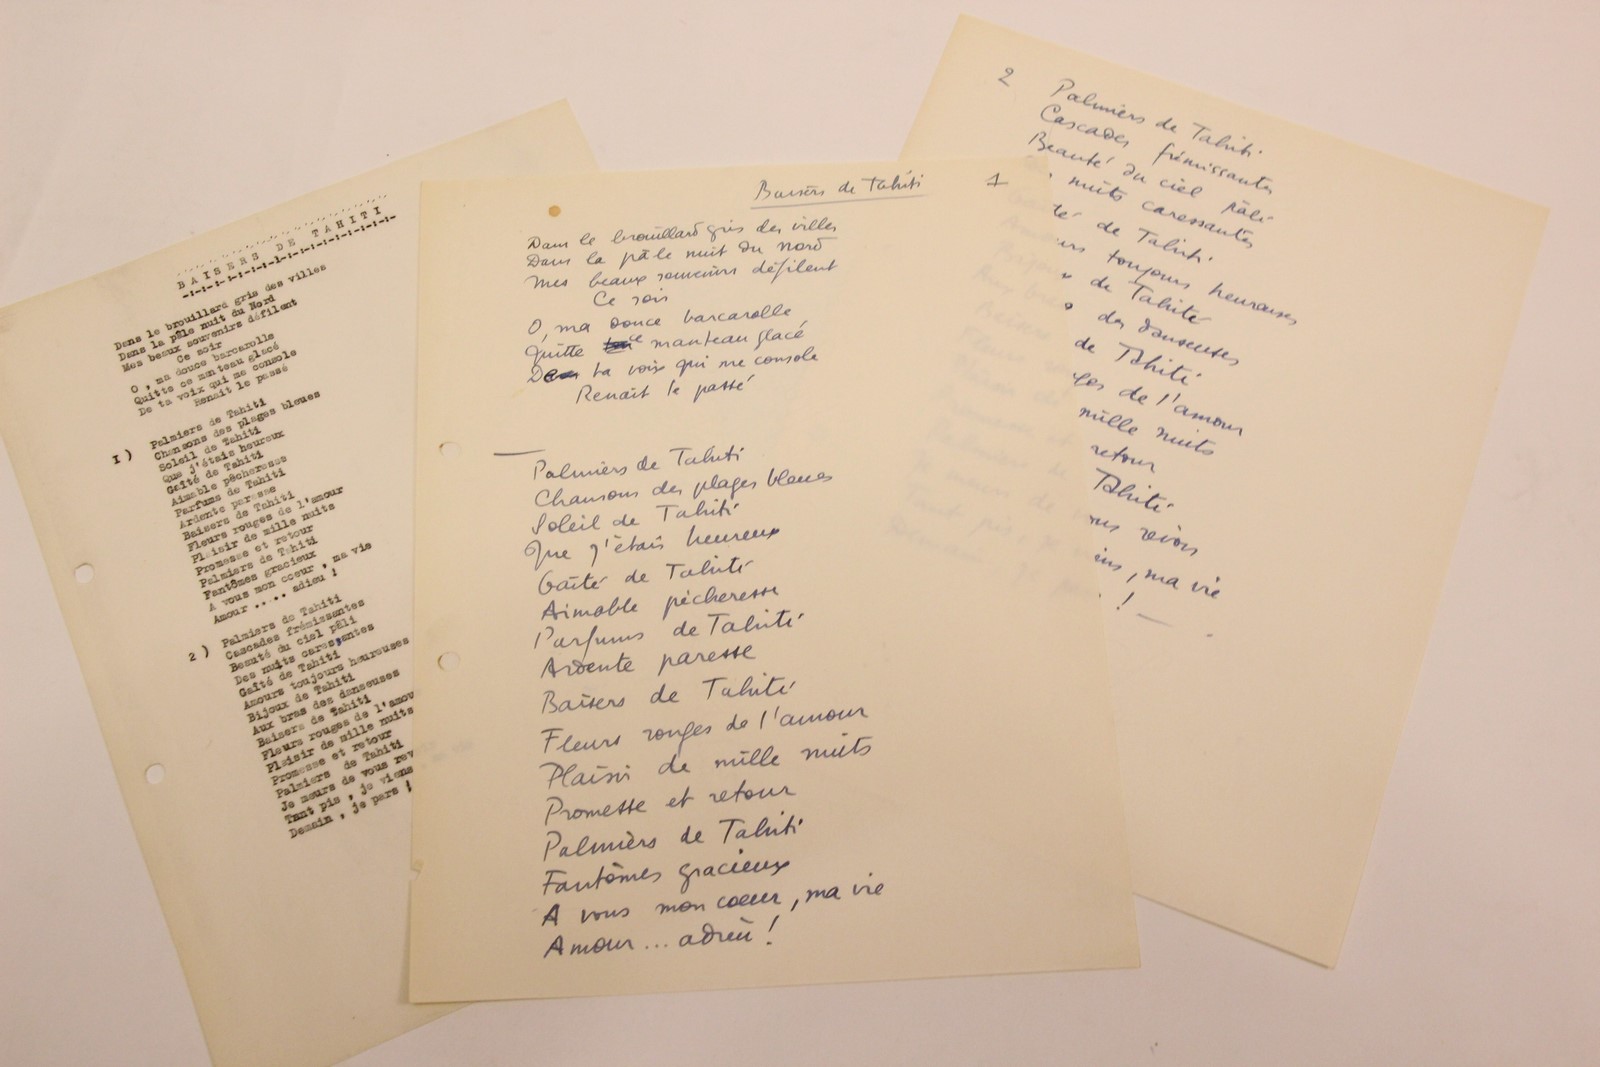 BAISERS DE TAHITI
Dans le brouillard gris des villes
Dans la pâle nuit du Nord
Mes beaux souvenirs défilent
Ce soir
O , ma douce barcarolle
Quitte ce manteau glacé
De ta voix qui me console
Renait le passé
1 ) Palmiers de Tahiti
Chansons des plages bleues
Soleil de Tahiti
Que j'étais heureux
Gaîté de Tahiti
Aimable pêcheresse
Parfums de Tahiti
Ardente paresse
Baisers de Tahiti
Fleurs rouges de l'amour
Plaisir de mille nuits
Promesse et retour
Palmiers de Tahiti
Fantômes gracieux
A vous mon coeur , ma vie
Amour ..... adieu !
2 ) Palmiers de Tahiti
Cascades frémissantes
Beauté du ciel pâli
Des nuits caressantes
Gaîté de Tahiti
Amours toujours heureuses
Bijoux de Tahiti
Aux bras des danseuses
Baisers de Tahiti
Fleurs rouges de l'amou
Plaisir de mille nuits
Promesse et retour
Palmiers de Tahiti
Je meurs de vous rev
Tant pis , je viens
Demain , je pars !
Baisers de Tahiti 1
Dans le brouillard gris des villes
Dans la pâle nuit du Nord
Mes beaux souvenirs défilent
Ce soir
O, ma douce barcarolle
Quitte ce manteau glacé
De ta voix qui me console
Renait le passé
Palmiers de Tahiti
Chansons des plages bleues
Soleil de Tahiti
Que j'étais heureux
Gaîté de Tahiti
Aimable pécheresse
Parfums de Tahiti
Ardente paresse
Baisers de Tahiti
Fleurs rouges de l'amour
Plaisir de mille nuits
Promesse et retour
Palmiers de Tahiti
Fantômes gracieux
A vous mon coeur, ma vie
Amour... adieu !
2 Palmiers de Tahiti
Cascades frémissantes
Beauté du ciel pâli
nuits caressantes
té de Tahiti
urs toujours heureuses
de Tahiti
des danseuses
de Tahiti
ges de l'amour
mille nuits
retour
Tahiti
ous revoir
ens, ma vie
!